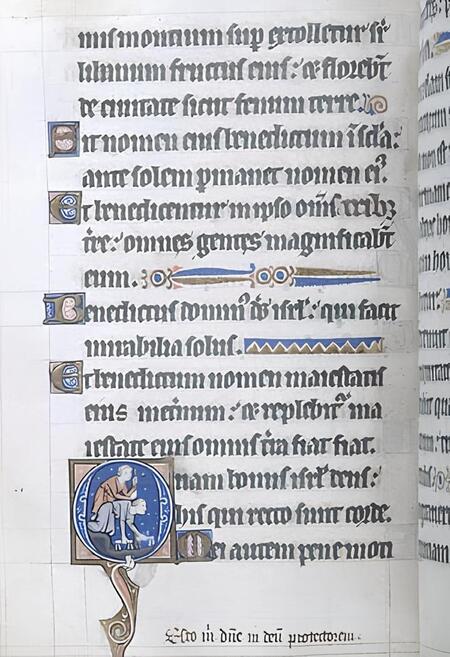 mis montium sup extolletur sr
libanum fructus eius: et florebt
de ciuitate sicut fenum terre.
Sit nomen eius benedictum i scla:
ante solem pmanet nomen ei9.
Et benedicentur in ipso oms tribz
tre: omnes gentes magnificabt
eum.
Benedictus domin9 ds isrl: qui facit
mirabilia solus.
Et benedictum nomen maiestatis
eius in etnum: et replebitr ma
iestate eius omnis tra fiat fiat.
Quam bonus isrl deus:
his qui recto sunt corde.
Mei autem pene moti
Esto m dne in deu protectorem.